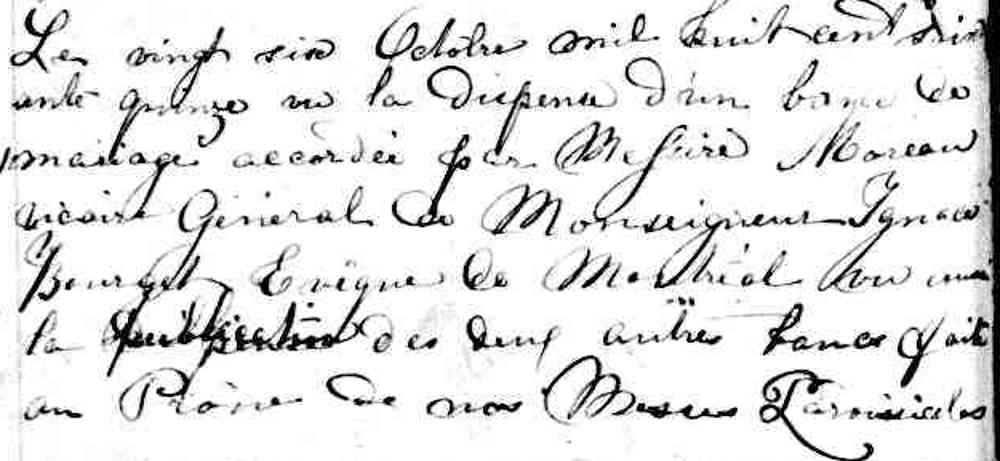 Le vingt six Octobre mil huit cent soix
ante quinze vu la dispense d'un banc de
mariage accordée par Messire Moreau
vicaire Général de Monseigneur Ignace
Bourget Evêque de Montréal vu aussi
la publication des deux autres bancs faite
au Prône de nos Messes Paroissiales